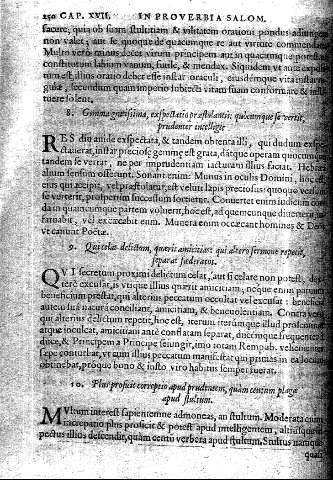 250 CAP. XVII. IN PROVERBIA SALOM.
facere, qui ob suam stultitiam & vilitatem orationi pondus adiungere
non valet; aut se quoque de quacumque re aut virtute commendare.
Multo vero minus decet virum principem aut in quacumque potestate
constitutum labium vanum, futile, & mendax. Siquidem vt aute
tum est illius oratio debet esse instar oraculi, eiusdemque vita instar
gulæ, secundum quam imperio subiecti vitam suam conformare & insti-
tuere solent.
8. Gemma gratissima, exspectatio præstolantis: quacumque se vertit,
prudenter intellegit
RES diu auide exspectata, & tandem obtenta illi, qui dudum exspe-
ctauerat, instar preciosæ gemmæ est grata, datque operam quocumque
tandem se verrat, ne per imprudentiam iacturam illius faciat. Hebræa
alium sensum ostendunt. Sonant enim: Munus in oculis Domini, hoc est,
eius qui accipit, vel præstolatur, est velut lapis preciosus: quoquo versum
se verterit, prosperum successum sortietur. Conuertet enim iudicem
da in quamcumque partem voluerit, hoc est, ad quemcunque diuertat,
fatuabit, vel excæcabit eum. Munera enim occæcant homines & Deos,
vt canunt Poëtæ.
9. Qui celat delictum, quærit amicitias: qui altero sermone repetit,
separat fœderatos.
QVI secretum proximi delictum celat, aut si celare non potest,
tere excusat, is vtique illius quærit amicitiam, neque enim paruum
beneficium præstat, qui alterius peccatum occultat vel excusat: beneficia
autem sua natura conciliant, amicitiam, & beneuolentiam. Contra vero
qui alterius delictum repetit, hoc est, iterum iterumque illud
atque inculcat, amicitiam ante conflatam separat, ducemque frequenter
duce, & Principem a Principe seiungit, imo totam Rempub. vehementer
sæpe conturbat, vt cum illius peccatum manifestat qui primas in ea locum
obtinebat, proque bono & iusto viro habitus semper fuerat.
10. Plus proficit correptio apud prudentem, quam centum plagæ
apud stultum.
MVltum interest sapientemne admoneas, an stultum. Moderata enim
increpatio plus proficit & potest apud intelligentem, altiusque in
pectus illius descendit, quam centū verbera apud stultum. Stultus natique
quasi